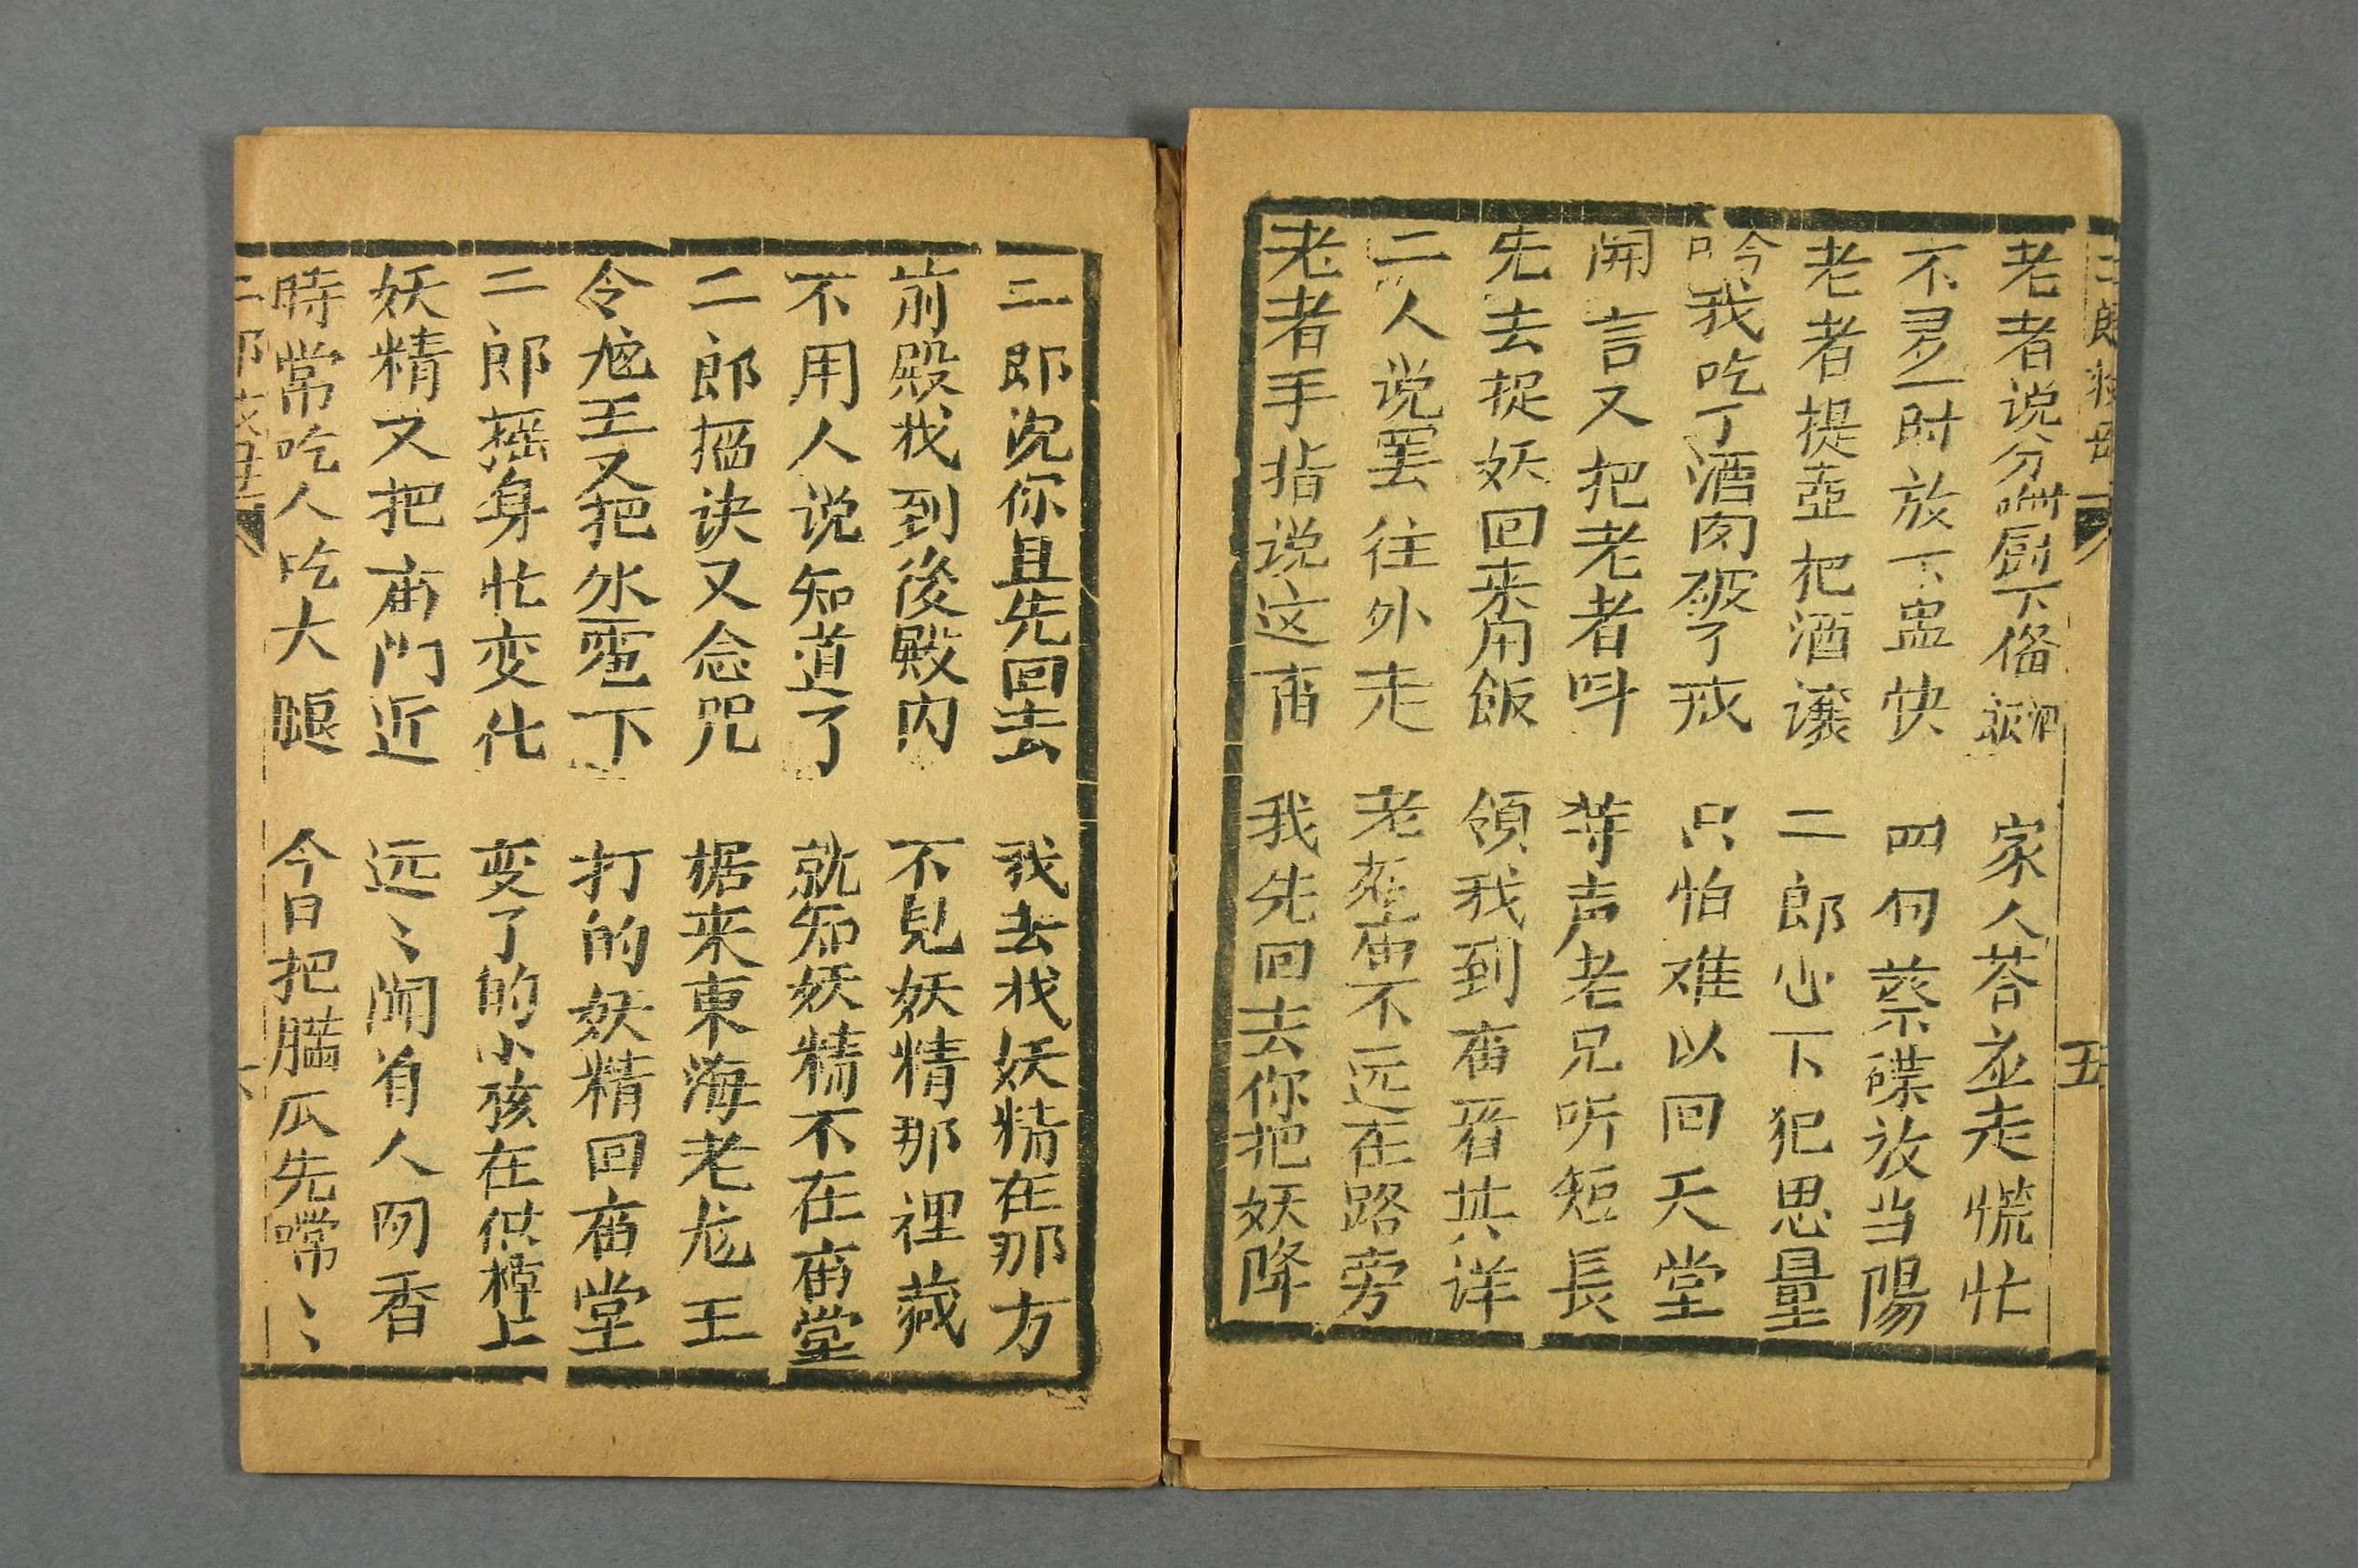 二郎救母 五
老者说分咐厨下俻酒飯 家人荅应走慌忙
不灵一时放下盅快 四个菜碟放当陽
老者提壶把酒讓 二郎心下犯思量
吟我吃了酒肉破了戒 只怕难以回天堂
開言又把老者呌 尊声老兄听短長
先去捉妖回来用飯 領我到庙看共详
二人说罢往外走 老爺庙不远在路旁
老者手指说这庙 我先回去你把妖降
二郎说你且先回去 我去找妖精在那方
前殿找到後殿内 不見妖精那裡藏
不用人说知道了 就知妖精不在庙堂
二郎掐诀又念咒 据来東海老龙王
令龙王又把氷雹下 打的妖精回庙堂
二郎摇身忙变化 变了的小孩在供棹上
妖精又把庙门近 远〻闻着有人肉香
時常吃人吃大腿 今日把腦瓜先嚐〻
二郎救母